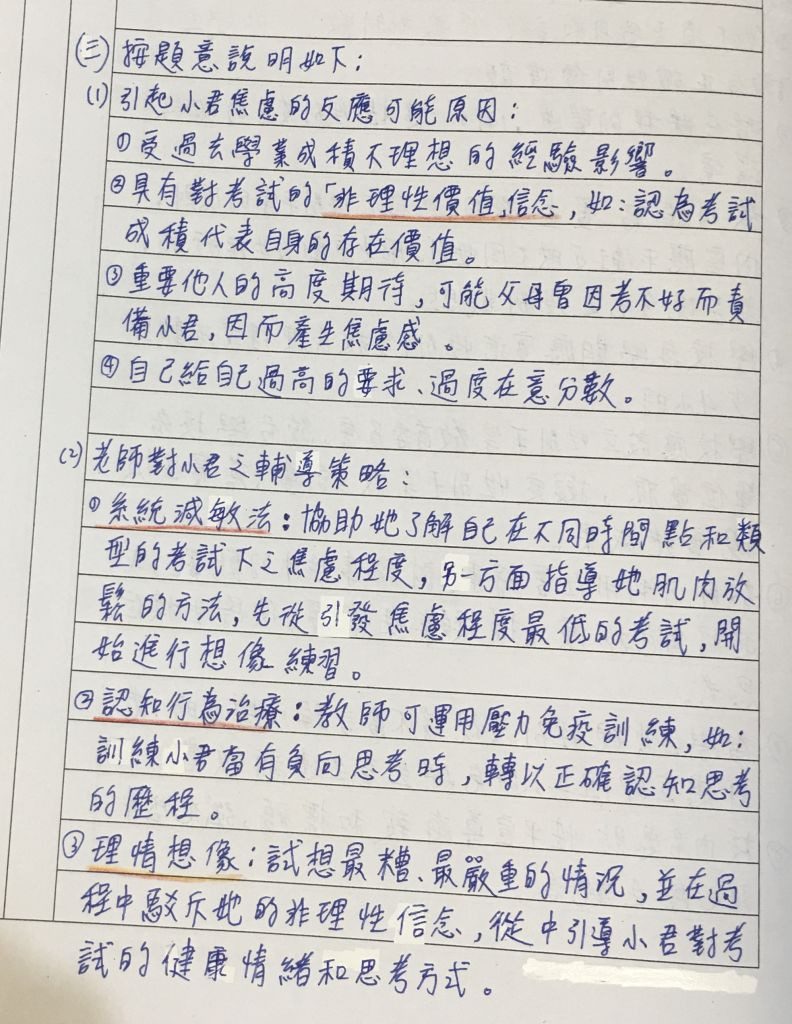 (三) 按題意說明如下：
(1) 引起小君焦慮的反應可能原因：
① 受過去學業成積不理想的經驗影響。
② 具有對考試的「非理性價值」信念，如：認為考試
成積代表自身的存在價值。
③ 重要他人的高度期待，可能父母曾因考不好而責
備小君，因而產生焦慮感。
④ 自己給自己過高的要求、過度在意分數。
(2) 老師對小君之輔導策略：
① 系統減敏法：協助她了解自己在不同時間點和類
型的考試下之焦慮程度，另一方面指導她肌肉放
鬆的方法，先從引發焦慮程度最低的考試，開
始進行想像練習。
② 認知行為治療：教師可運用壓力免疫訓練，如：
訓練小君當有負向思考時，轉以正確認知思考
的歷程。
③ 理情想像：試想最糟、最嚴重的情況，並在過
程中駁斥她的非理性信念，從中引導小君對考
試的健康情緒和思考方式。